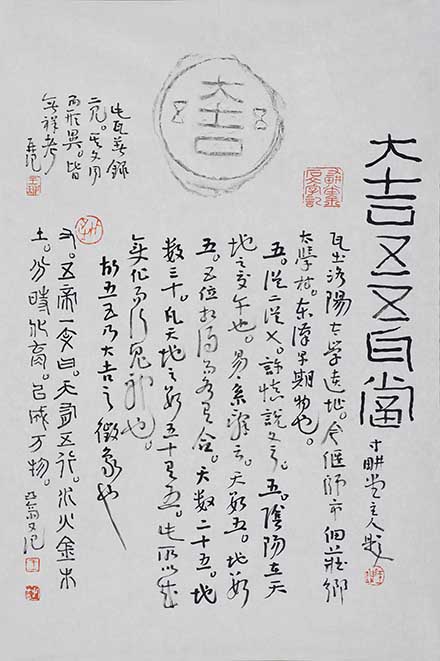 大吉
五 五
大吉五五瓦當
寸耕堂主人題
瓦出洛陽太學遺址。今偃師市佃莊鄉
太學村。東漢早期物也。
五。从二从乂。許慎說文云。五。陰陽在天
地之交午也。易系辭云。天數五。地數
五。五位相得而各有合。天數二十五。地
數三十。凡天地之數五十有五。此所以成
變化而行鬼神也。
故五五乃大吉之徵象也
又。五帝一文曰。天有五行。水火金木
土。分時化育。以成万物。
又記
此瓦著錄
二見。其文同
而形異。皆
無祥考